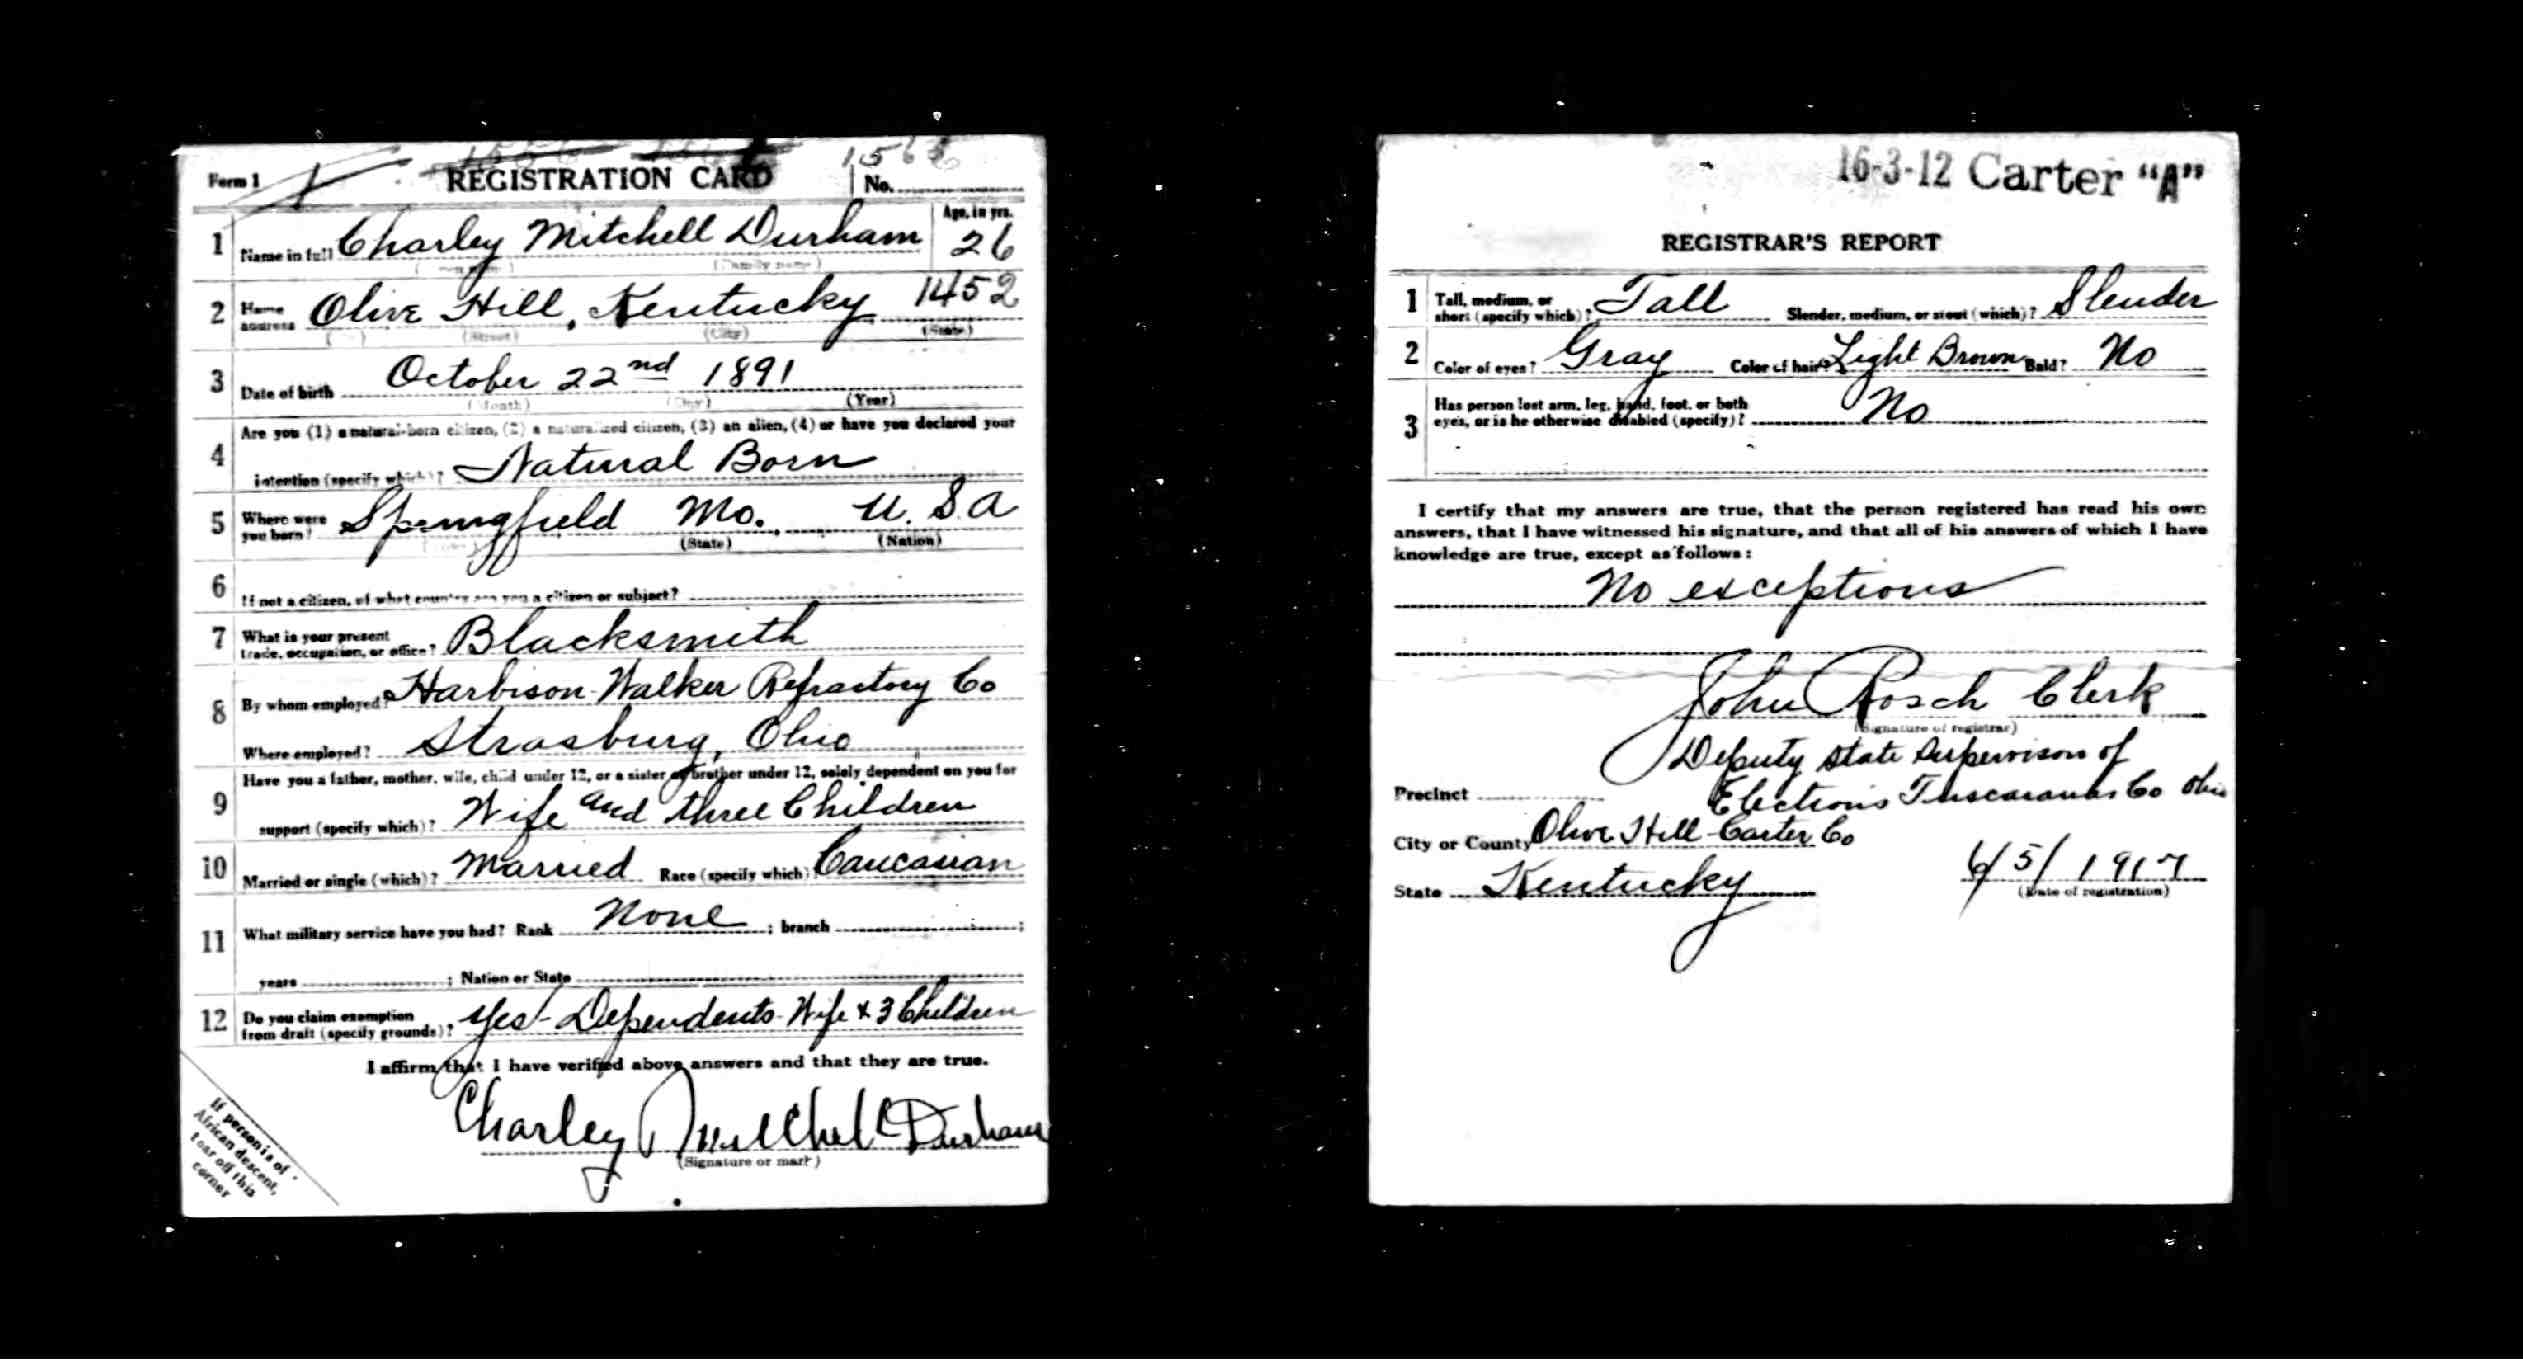 Form 1
REGISTRATION CARD
No.
1 Name in full Charley Mitchell Durham Age, in yrs. 26
(Family name)
2 Home address Olive Hill, Kentucky 1452
(Street) (City) (State)
3 Date of birth October 22nd 1891
(Month) (Day) (Year)
4 Are you (1) a natural-born citizen, (2) a naturalized citizen, (3) an alien, (4) or have you declared your
intention (specify which)? Natural Born
5 Where were you born? Springfield Mo. U.S.A
(State) (Nation)
6 If not a citizen, of what country are you a citizen or subject?
7 What is your present trade, occupation, or office? Blacksmith
8 By whom employed? Harbison-Walker Refractory Co
Where employed? Strasburg, Ohio
9 Have you a father, mother, wife, child under 12, or a sister or brother under 12, solely dependent on you for
support (specify which)? Wife and three Children
10 Married or single (which)? Married Race (specify which)? Caucasian
11 What military service have you had? Rank None ; branch ;
years ; Nation or State
12 Do you claim exemption from draft (specify grounds)? Yes - Dependents - Wife & 3 Children
I affirm that I have verified above answers and that they are true.
Charley Mitchel Durham
(Signature or mark)
If person is of
African descent,
tear off this
corner
16-3-12 Carter "A"
REGISTRAR'S REPORT
1 Tall, medium, or short (specify which)? Tall Slender, medium, or stout (which)? Slender
2 Color of eyes? Gray Color of hair? Light Brown Bald? No
3 Has person lost arm, leg, hand, foot, or both
eyes, or is he otherwise disabled (specify)? No
I certify that my answers are true, that the person registered has read his own
answers, that I have witnessed his signature, and that all of his answers of which I have
knowledge are true, except as follows:
No exceptions
John Rosch Clerk
(Signature of registrar)
Deputy State Supervison of
Precinct Elections Tuscarawas Co Ohio
City or County Olive Hill - Carter Co
State Kentucky 6/5/1917
(Date of registration)